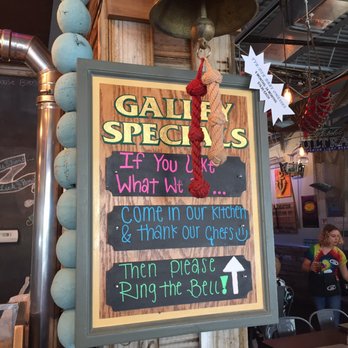 GALLEY
SPECIALS
If You Like
What We ...
Come in our Kitchen
& thank our Chefs
Then Please
Ring the Bell!